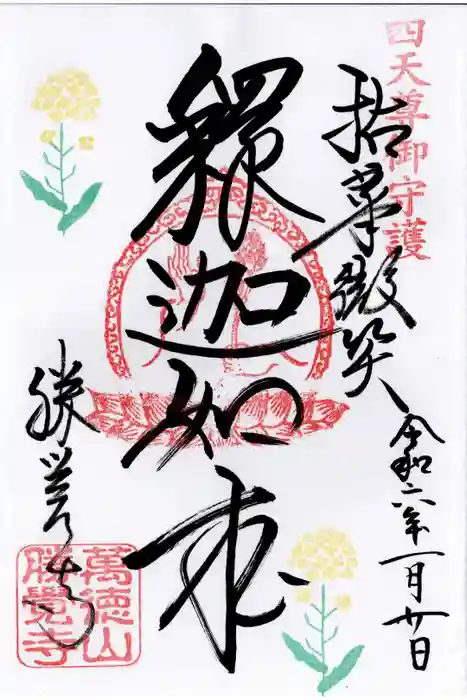 四天尊御守護
拈華微笑
令和六年一月廿日
釋迦如来
勝覺寺
萬徳山
勝覺寺